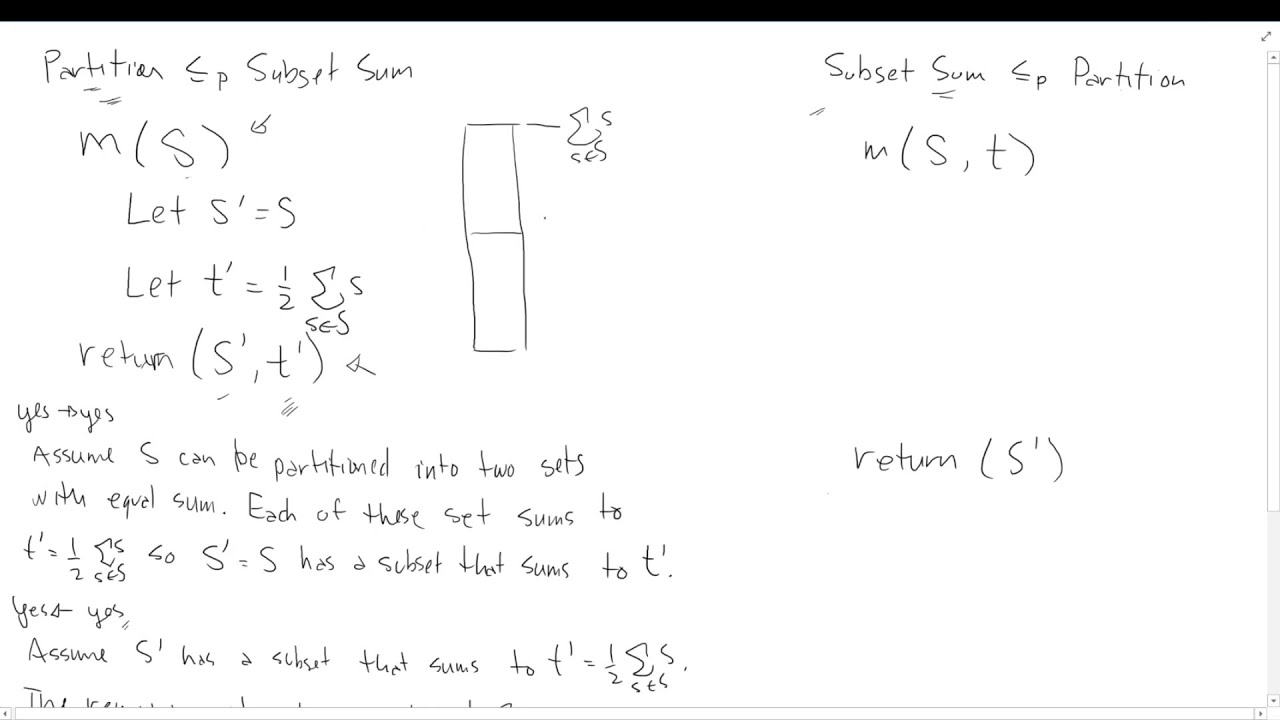 Partition ≤p Subset Sum
m(S)
Let S' = S
Let t' = 1/2 ∑ s∈S s
return (S', t')
∑ s∈S s
yes → yes
Assume S can be partitioned into two sets
with equal sum. Each of these set sums to
t' = 1/2 ∑ s∈S s so S' = S has a subset that sums to t'.
yes ← yes
Assume S' has a subset that sums to t' = 1/2 ∑ s∈S s.
The
Subset Sum ≤p Partition
m(S, t)
return (S')